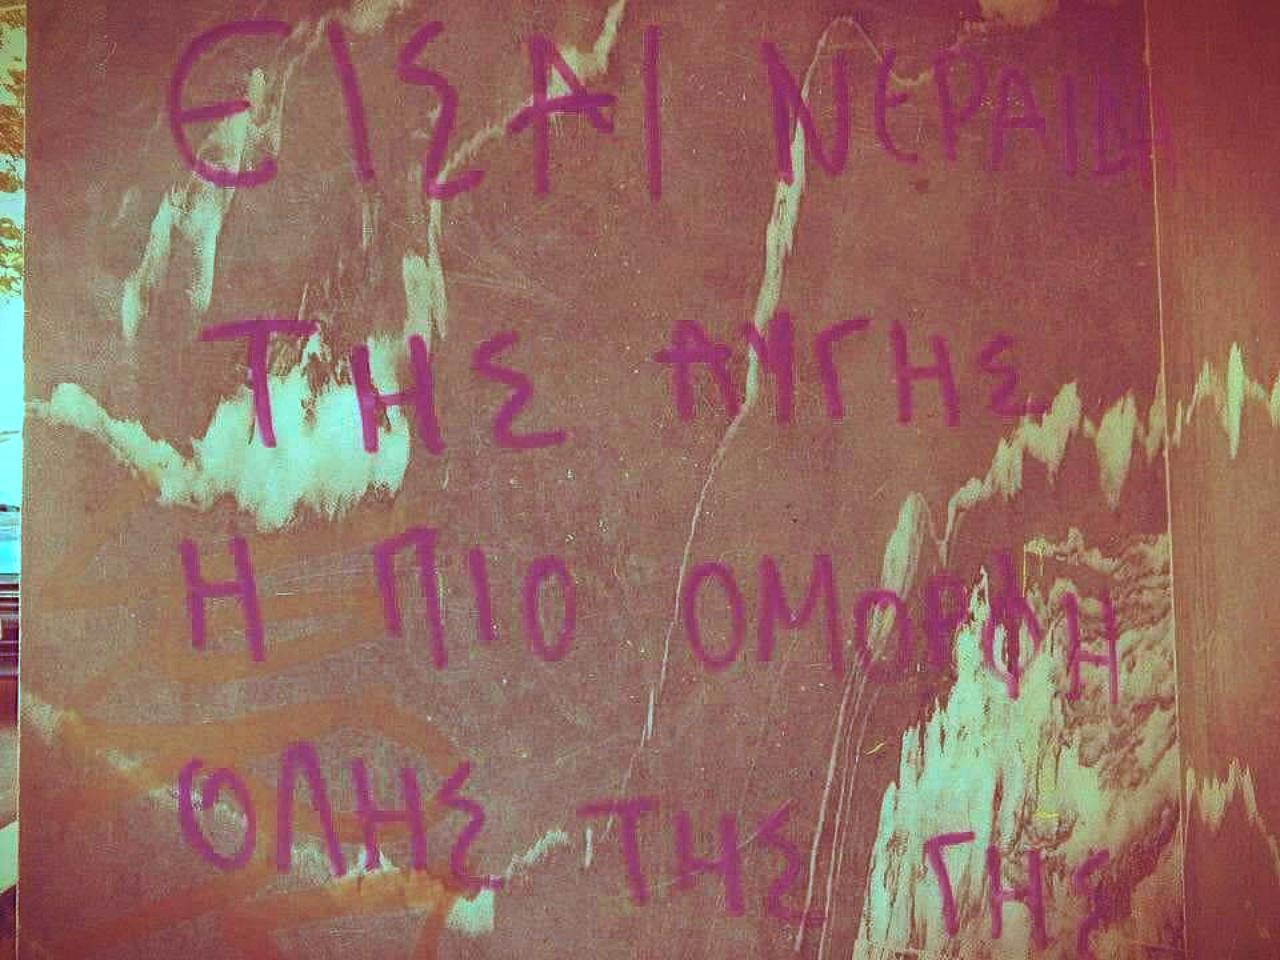 ΕΙΣΑΙ ΝΕΡΑΙΔΑ
ΤΗΣ ΑΥΓΗΣ
Η ΠΙΟ ΟΜΟΡΦΗ
ΟΛΗΣ ΤΗΣ ΓΗΣ